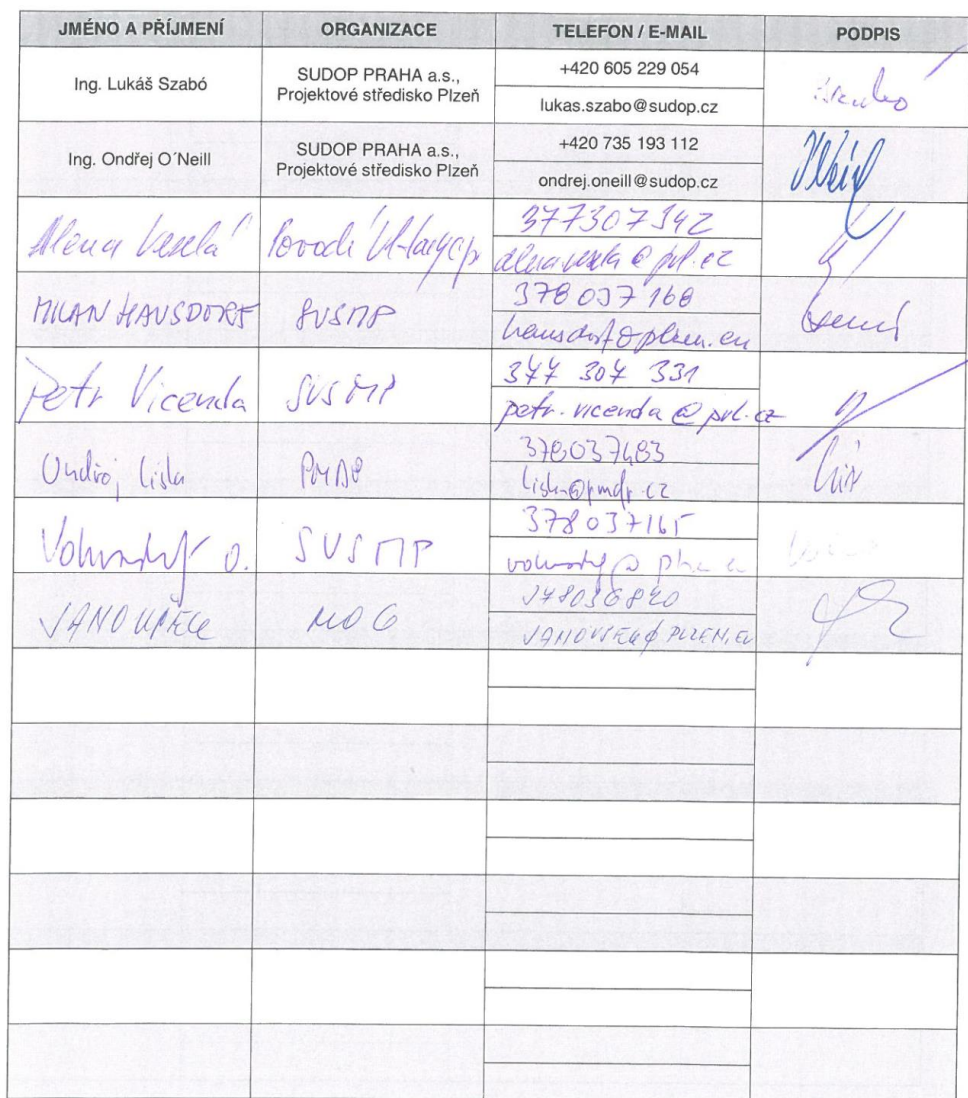 JMÉNO A PŘÍJMENÍ ORGANIZACE TELEFON / E-MAIL PODPIS
Ing. Lukáš Szabó
SUDOP PRAHA a.s.,
Projektové středisko Plzeň
+420 605 229 054
lukas.szabo@sudop.cz
Ing. Ondřej O´Neill
SUDOP PRAHA a.s.,
Projektové středisko Plzeň
+420 735 193 112
ondrej.oneill@sudop.cz
Alena Veselá
Povodí
377307342
MILAN HAUSDORF
SVSMP
378037168
hausdorf@plzen.eu
Petr Vicenda
SVSMP
377 307 331
petr.vicenda@pvl.cz
Ondřej Liška
PMDP
378037483
liska@pmdp.cz
SVSMP
378037165
378036820